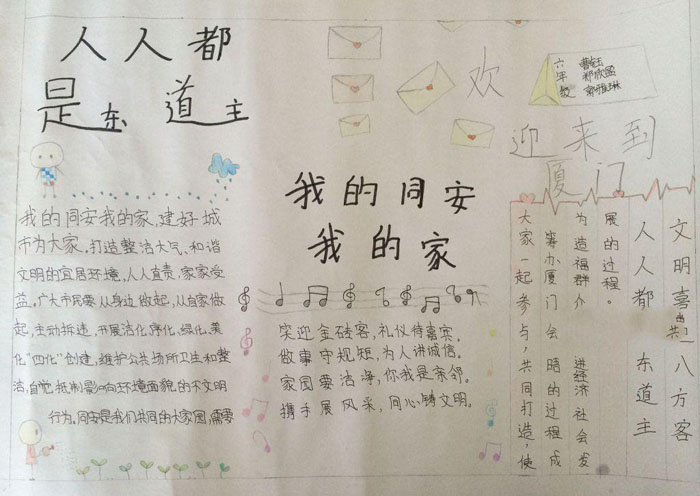 人人都
是东道主
欢
迎来到
厦门
六年级
我的同安我的家,建好城
市为大家。打造整洁大气、和谐
文明的宜居环境,人人直责,家家受
益。广大市民要从身边做起,从自家做
起,主动拆违,开展洁化、净化、绿化、美
化"四化"创建,维护公共场所卫生和整
洁,自觉抵制影响环境面貌的不文明
行为。同安是我们共同的大家园,需要
我的同安
我的家
笑迎金砖客,礼仪待嘉宾。
做事守规矩,为人讲诚信。
家园要洁净,你我是亲邻。
携手展风采,同心铸文明。
文明喜迎八方客
人人都 东道主
展的过程。
为造福群 进经济社会发
筹办厦门会晤的过程成
大家一起参与,共同打造,使